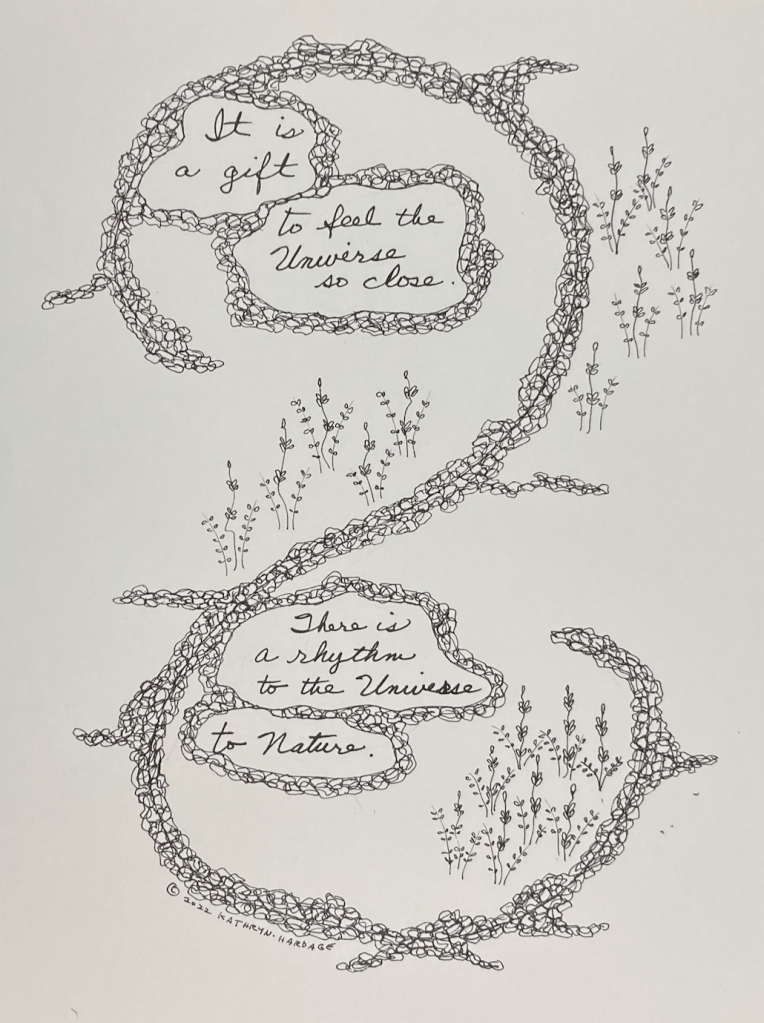 It is
a gift
to feel the
Universe
so close.
There is
a rhythm
to the Universe
to Nature.
© 2022 KATHRYN. HARDAGE